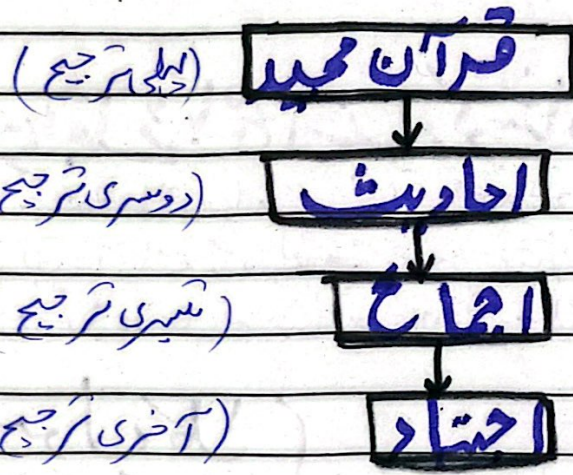 قرآن مجید (پہلی ترجیح)
احادیث (دوسری ترجیح
اجماع (تیسری ترجیح
اجتہاد (آخری ترجیح